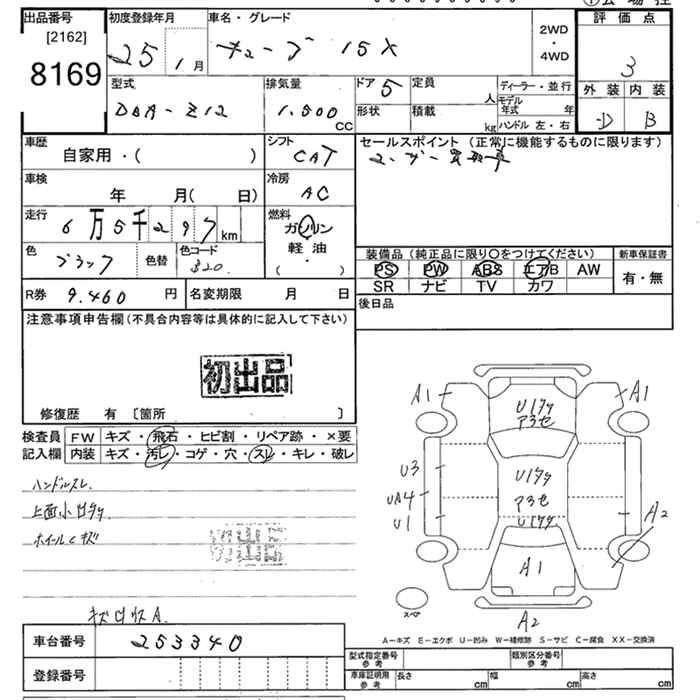 出品番号
[2162]
8169
初度登録年月
25年1月
車名・グレード
キューブ 15X
2WD
・
4WD
評価点
3
外装 内装
D B
型式
DBA-Z12
排気量
1.500
CC
ドア 5
定員
人
形状
積載
kg
ディーラー・並行
モデル年式 年
ハンドル 左・右
車歴
自家用・( )
シフト
CAT
車検
年 月( 日)
冷房
AC
走行
6万5千297km
燃料
ガソリン
軽油
( ・ )
色
ブラック
色替
色コード
320
R券 9.460円
名変期限 月 日
セールスポイント(正常に機能するものに限ります)
装備品(純正品に限り〇をつけてください)
PS PW ABS エアB AW
SR ナビ TV カワ
新車保証書
有・無
後日品
注意事項申告欄(不具合内容等は具体的に記入して下さい)
初出品
修復歴 有 〔箇所 〕
検査員
記入欄
FW キズ・飛石・ヒビ割・リペア跡・×要
内装 キズ・汚レ・コゲ・穴・スレ・キレ・破レ
ハンドルスレ
ホイールキズ
初出品
A1
A1
U3
UA4
U1
A2
A1
スペア
A2
A－キズ E－エクボ U－凹み W－補修跡 S－サビ C－腐食 XX－交換済
車台番号
253340
登録番号
型式指定番号
参考
類別区分番号
参考
車庫証明用
参考
長さ cm
幅 cm
高さ cm